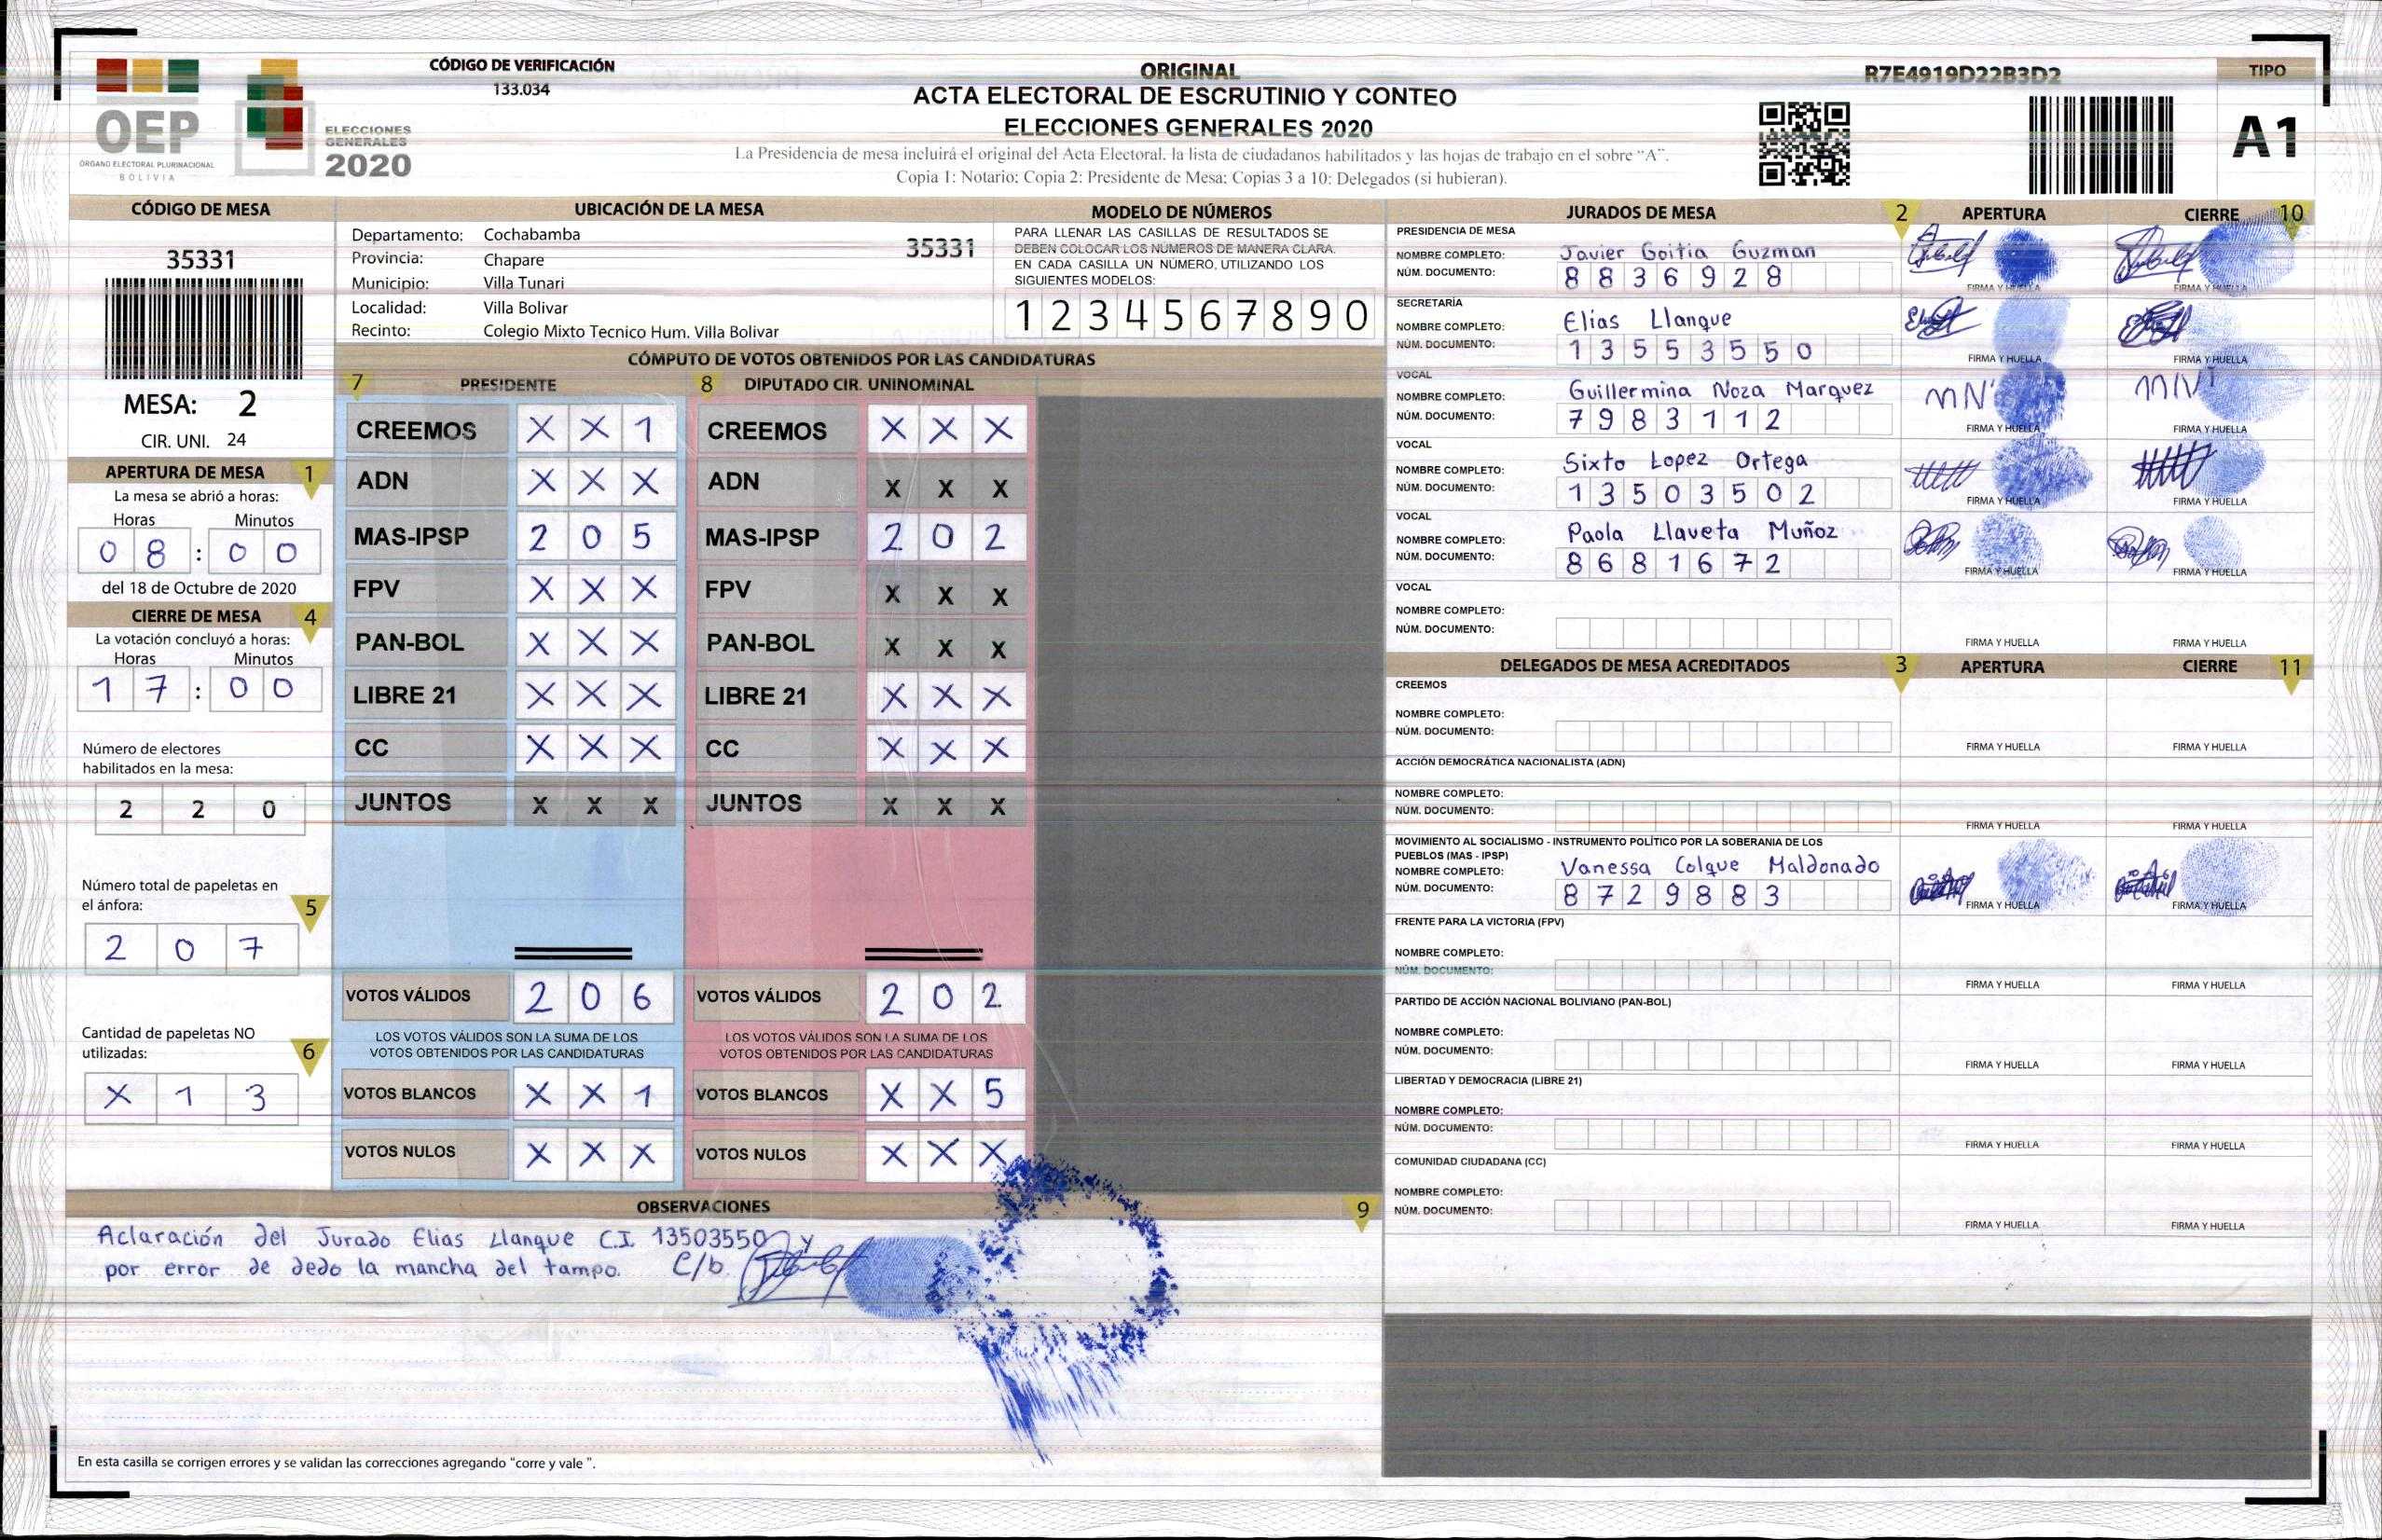 OEP
ÓRGANO ELECTORAL PLURINACIONAL
BOLIVIA
ELECCIONES
GENERALES
2020
CÓDIGO DE VERIFICACIÓN
133.034
ORIGINAL
ACTA ELECTORAL DE ESCRUTINIO Y CONTEO
ELECCIONES GENERALES 2020
La Presidencia de mesa incluirá el original del Acta Electoral, la lista de ciudadanos habilitados y las hojas de trabajo en el sobre "A".
Copia 1: Notario; Copia 2: Presidente de Mesa; Copias 3 a 10: Delegados (si hubieran).
R7E4919D22B3D2
TIPO
A1
CÓDIGO DE MESA
35331
MESA: 2
CIR. UNI. 24
APERTURA DE MESA 1
La mesa se abrió a horas:
Horas Minutos
0 8 : 0 0
del 18 de Octubre de 2020
CIERRE DE MESA 4
La votación concluyó a horas:
Horas Minutos
1 7 : 0 0
Número de electores
habilitados en la mesa:
2 2 0
Número total de papeletas en
el ánfora: 5
2 0 7
Cantidad de papeletas NO
utilizadas: 6
X 1 3
UBICACIÓN DE LA MESA
Departamento: Cochabamba
35331
Provincia: Chapare
Municipio: Villa Tunari
Localidad: Villa Bolivar
Recinto: Colegio Mixto Tecnico Hum. Villa Bolivar
MODELO DE NÚMEROS
PARA LLENAR LAS CASILLAS DE RESULTADOS SE
DEBEN COLOCAR LOS NÚMEROS DE MANERA CLARA.
EN CADA CASILLA UN NÚMERO, UTILIZANDO LOS
SIGUIENTES MODELOS:
1 2 3 4 5 6 7 8 9 0
CÓMPUTO DE VOTOS OBTENIDOS POR LAS CANDIDATURAS
7 PRESIDENTE 8 DIPUTADO CIR. UNINOMINAL
CREEMOS X X 1 CREEMOS X X X
ADN X X X ADN X X X
MAS-IPSP 2 0 5 MAS-IPSP 2 0 2
FPV X X X FPV X X X
PAN-BOL X X X PAN-BOL X X X
LIBRE 21 X X X LIBRE 21 X X X
CC X X X CC X X X
JUNTOS X X X JUNTOS X X X
VOTOS VÁLIDOS 2 0 6 VOTOS VÁLIDOS 2 0 2
LOS VOTOS VÁLIDOS SON LA SUMA DE LOS LOS VOTOS VÁLIDOS SON LA SUMA DE LOS
VOTOS OBTENIDOS POR LAS CANDIDATURAS VOTOS OBTENIDOS POR LAS CANDIDATURAS
VOTOS BLANCOS X X 1 VOTOS BLANCOS X X 5
VOTOS NULOS X X X VOTOS NULOS X X X
OBSERVACIONES 9
Aclaración del Jurado Elias Llanque C.I. 13503550 y
por error de dedo la mancha del tampo. C/b
En esta casilla se corrigen errores y se validan las correcciones agregando "corre y vale ".
JURADOS DE MESA 2 APERTURA CIERRE 10
PRESIDENCIA DE MESA
NOMBRE COMPLETO: Javier Goitia Guzman
NÚM. DOCUMENTO: 8 8 3 6 9 2 8
FIRMA Y HUELLA FIRMA Y HUELLA
SECRETARÍA
NOMBRE COMPLETO: Elias Llanque
NÚM. DOCUMENTO: 1 3 5 5 3 5 5 0
FIRMA Y HUELLA FIRMA Y HUELLA
VOCAL
NOMBRE COMPLETO: Guillermina Noza Marquez
NÚM. DOCUMENTO: 7 9 8 3 1 1 2
FIRMA Y HUELLA FIRMA Y HUELLA
VOCAL
NOMBRE COMPLETO: Sixto Lopez Ortega
NÚM. DOCUMENTO: 1 3 5 0 3 5 0 2
FIRMA Y HUELLA FIRMA Y HUELLA
VOCAL
NOMBRE COMPLETO: Paola Llaveta Muñoz
NÚM. DOCUMENTO: 8 6 8 1 6 7 2
FIRMA Y HUELLA FIRMA Y HUELLA
VOCAL
NOMBRE COMPLETO:
NÚM. DOCUMENTO:
FIRMA Y HUELLA FIRMA Y HUELLA
DELEGADOS DE MESA ACREDITADOS 3 APERTURA CIERRE 11
CREEMOS
NOMBRE COMPLETO:
NÚM. DOCUMENTO:
FIRMA Y HUELLA FIRMA Y HUELLA
ACCIÓN DEMOCRÁTICA NACIONALISTA (ADN)
NOMBRE COMPLETO:
NÚM. DOCUMENTO:
FIRMA Y HUELLA FIRMA Y HUELLA
MOVIMIENTO AL SOCIALISMO - INSTRUMENTO POLÍTICO POR LA SOBERANIA DE LOS
PUEBLOS (MAS - IPSP)
NOMBRE COMPLETO: Vanessa Colque Maldonado
NÚM. DOCUMENTO: 8 7 2 9 8 8 3
FIRMA Y HUELLA FIRMA Y HUELLA
FRENTE PARA LA VICTORIA (FPV)
NOMBRE COMPLETO:
NÚM. DOCUMENTO:
FIRMA Y HUELLA FIRMA Y HUELLA
PARTIDO DE ACCIÓN NACIONAL BOLIVIANO (PAN-BOL)
NOMBRE COMPLETO:
NÚM. DOCUMENTO:
FIRMA Y HUELLA FIRMA Y HUELLA
LIBERTAD Y DEMOCRACIA (LIBRE 21)
NOMBRE COMPLETO:
NÚM. DOCUMENTO:
FIRMA Y HUELLA FIRMA Y HUELLA
COMUNIDAD CIUDADANA (CC)
NOMBRE COMPLETO:
NÚM. DOCUMENTO:
FIRMA Y HUELLA FIRMA Y HUELLA